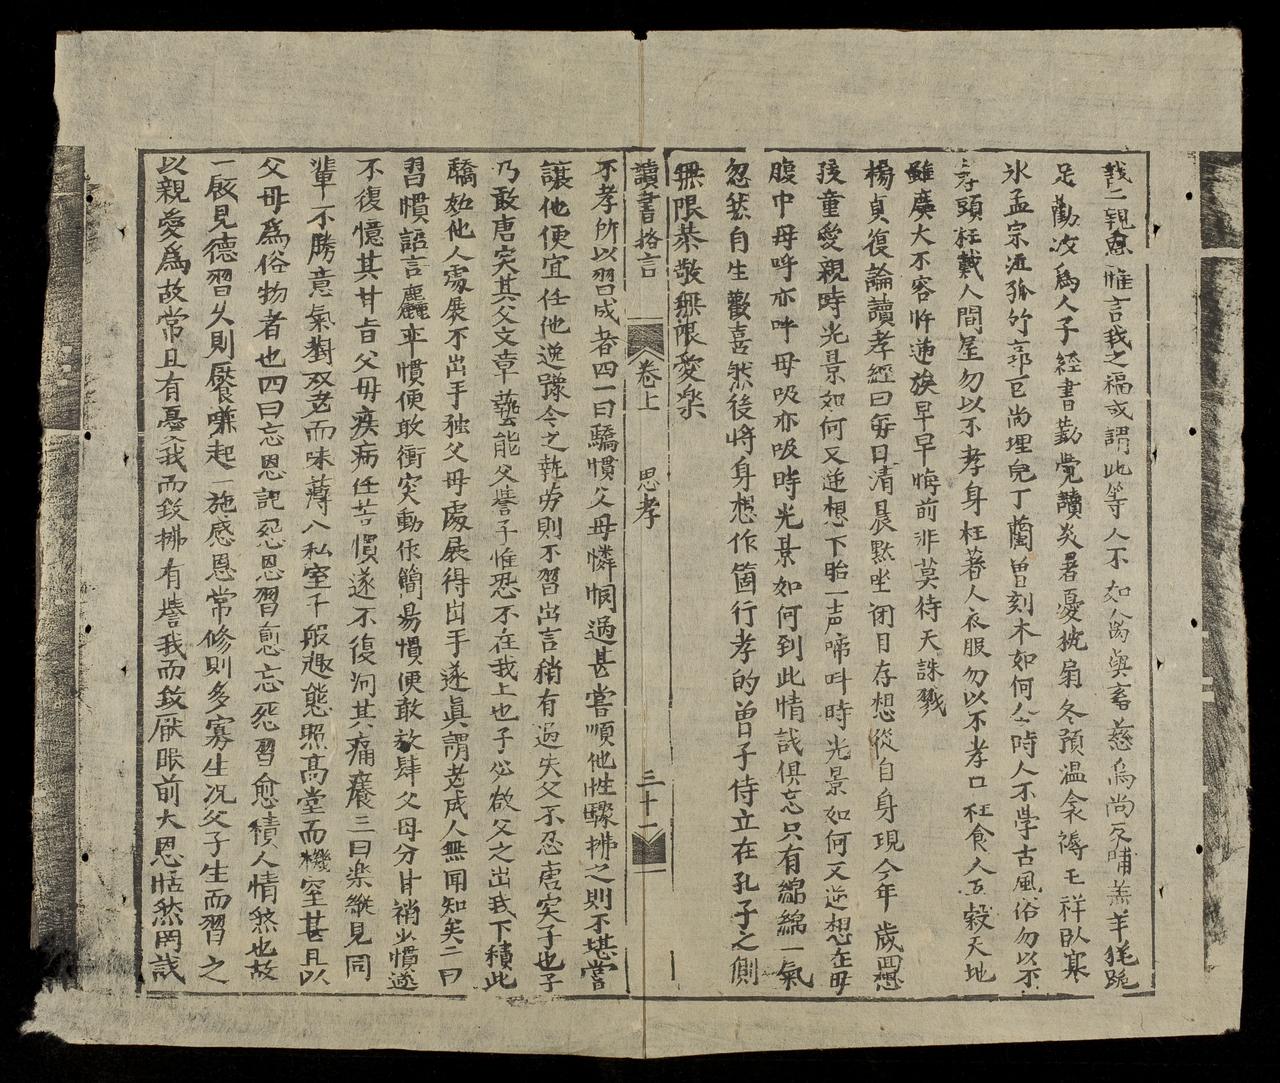 我二親恩惟言我之福或謂此等人不如禽與畜慈烏尚反哺羔羊猶跪
足勸汝爲人子經書勤覺讀炎暑憂枕扇冬預温衾褥王祥臥寒
氷孟宗泣孤竹郭巨尚埋兒丁蘭曽刻木如何今時人不學古風俗勿以不
孝頭枉戴人間屋勿以不孝身枉著人衣服勿以不孝口枉食人五穀天地
雖廣大不容忤逆族早早悔前非莫待天誅戮
楊貞復論讀孝經曰每日清晨黙坐閉目存想從自身現今年歲囬想
孩童愛親時光景如何又逆想下胎一声啼呌時光景如何又逆想在母
腹中母呼亦呼母吸亦吸時光景如何到此情哉俱忘只有綿綿一氣
忽然自生歡喜然後將身想作箇行孝的曽子侍立在孔子之側
無限恭敬無限愛樂
讀書格言 卷上 思孝 三十二
不孝所以習成者四一曰驕慣父母憐恫過甚嘗順他性驟拂之則不堪嘗
讓他便宜任他逸豫令之執劳則不習出言稍有過失父不忍唐突子也子
乃敢唐突其父文章藝能父譽子惟恐不在我上也子必欲父之出我下積此
驕始他人處展不出手独父母處展得出手遂真謂老成人無聞知矣二曰
習慣語言麤率慣便敢衝突動作簡易慣便敢放肆父母分甘稍少慣遂
不復憶其甘旨父母疾病任苦慣遂不復问其痛癢三曰樂縱見同
輩不勝意氣對双老而味薄入私室千般趣態照高堂而機窒甚且以
父母爲俗物者也四曰忘恩記怨恩習愈忘怨習愈積人情然也故
一飯見德習久則厭嫌起一施感恩常修則多寡生况父子生而習之
以親愛爲故常且有憂我而致拂有譽我而致厭眼前大恩恬然罔哉